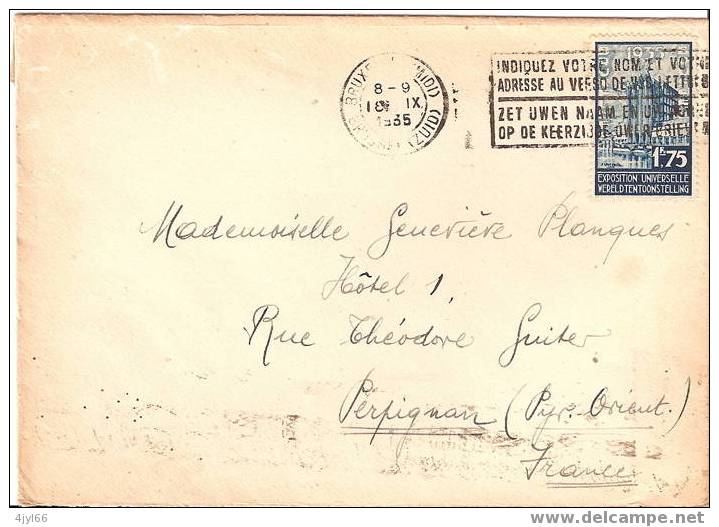 BRUX (MIDI)
8-9
18 IX
1935
(ZUID)
INDIQUEZ VOTRE NOM ET VOTRE
ADRESSE AU VERSO DE VOS LETTRES
ZET UWEN NAAM EN UW ADRES
OP DE KEERZIJDE UWER BRIEVEN
1935
1F.75
EXPOSITION UNIVERSELLE
WERELDTENTOONSTELLING
Mademoiselle Geneviève Planques
Hôtel 1,
Rue Théodore Guiter
Perpignan (Pyr. Orient.)
France
4jyl66
www.delcampe.net